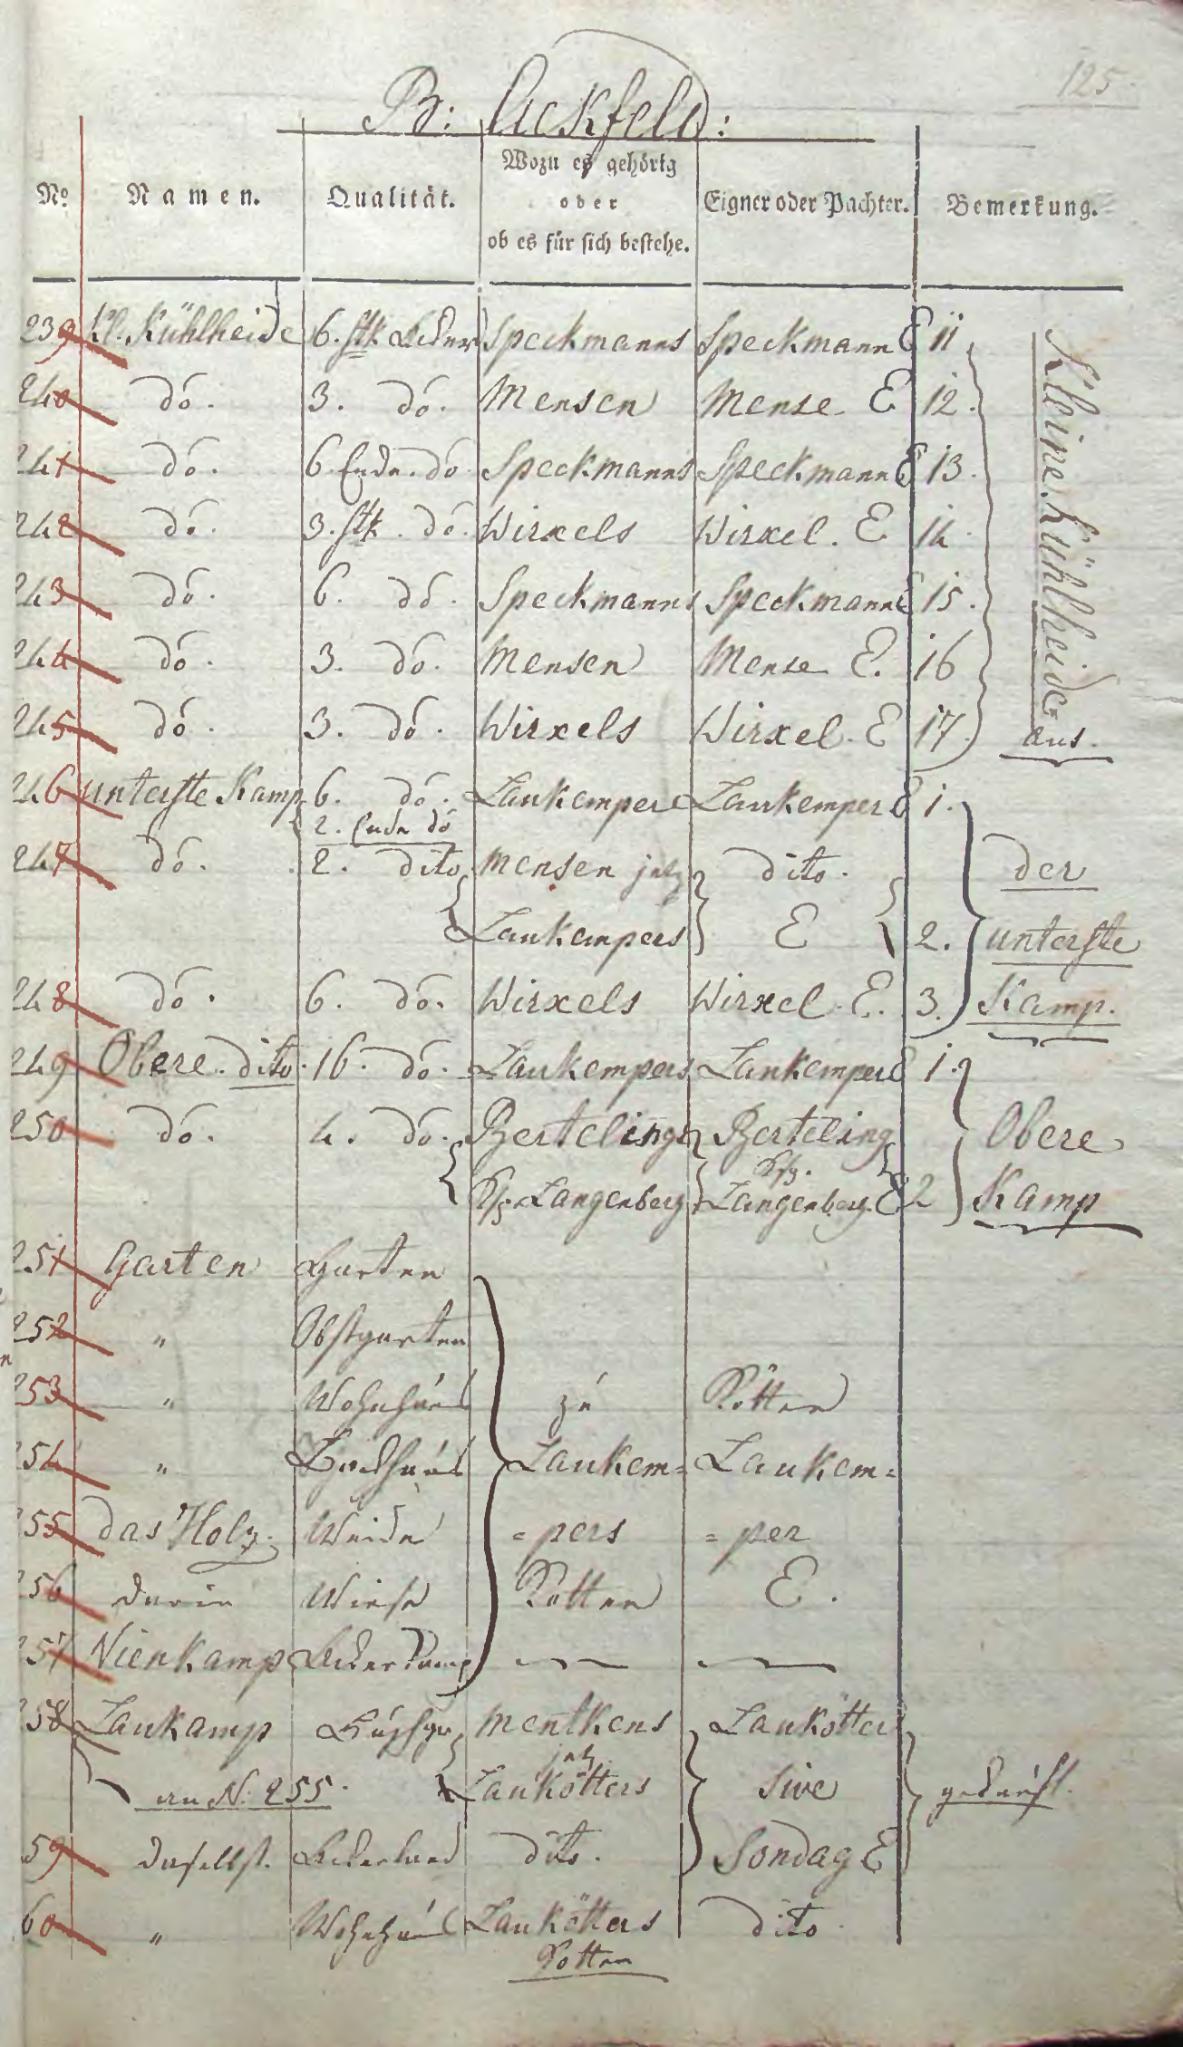 125.
B: Ackfeld:
No. Namen. Qualität. Wozu es gehörig oder ob es für sich bestehe. Eigner oder Pachter. Bemerkung.
239 Kl. Kühlheide 6. stk Acker Speckmanns Speckmann E 11
240 do. 3. do. Mensen Mense E 12.
241 do. 6 Ende do Speckmanns Speckmann E 13.
242 do. 3. stk. do. Wirxels Wirxel. E 14
243 do. 6. do. Speckmanns Speckmann E 15.
244 do. 3. do. Mensen Mense E. 16
245 do. 3. do. Wirxels Wirxel. E 17.
Kleine Kühlheide
aus.
246 unterste Kamp 6. do. Laukempers Laukemper E 1.
2. Ende do
247 do. 2. dito Mensen jetz dito. der
Laukempers E 2. unterste
248 do. 6. do. Wirxels Wirxel. E. 3. Kamp.
249 Obere dito. 16. do. Laukempers Laukemper E 1.
250 do. 4. do. Bertelings Berteling Obere
Kfz.
Kfz. Langenberg Langenberg. E 2 Kamp
251 Garten Garten
252 " Obstgarten
253 " Wohnhaus zu Kötter
254 " Backhaus Laukem= Laukem=
255 das Holz. Weide =pers =per
256 darin Wiese Kotten E.
257 Nienkamp Ackerkamp
258 Laukamp Menkens Laukötter
jetz
an N. 255. Laukötters sive gekauft.
59 daselbst. Ackerland dito. Sondag E
60 " Wohnhaus Laukötters dito.
Kotten